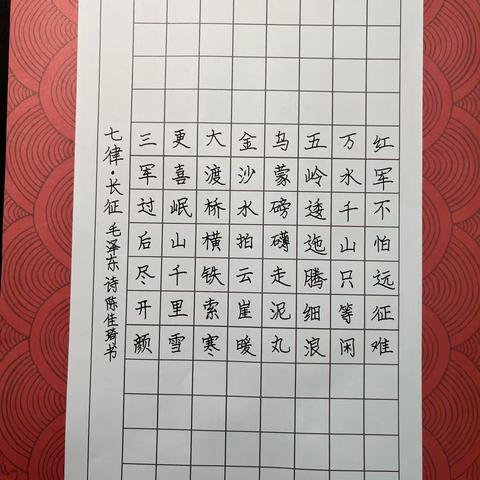 红军不怕远征难
万水千山只等闲
五岭逶迤腾细浪
乌蒙磅礴走泥丸
金沙水拍云崖暖
大渡桥横铁索寒
更喜岷山千里雪
三军过后尽开颜
七律·长征 毛泽东诗 陈佳琦书